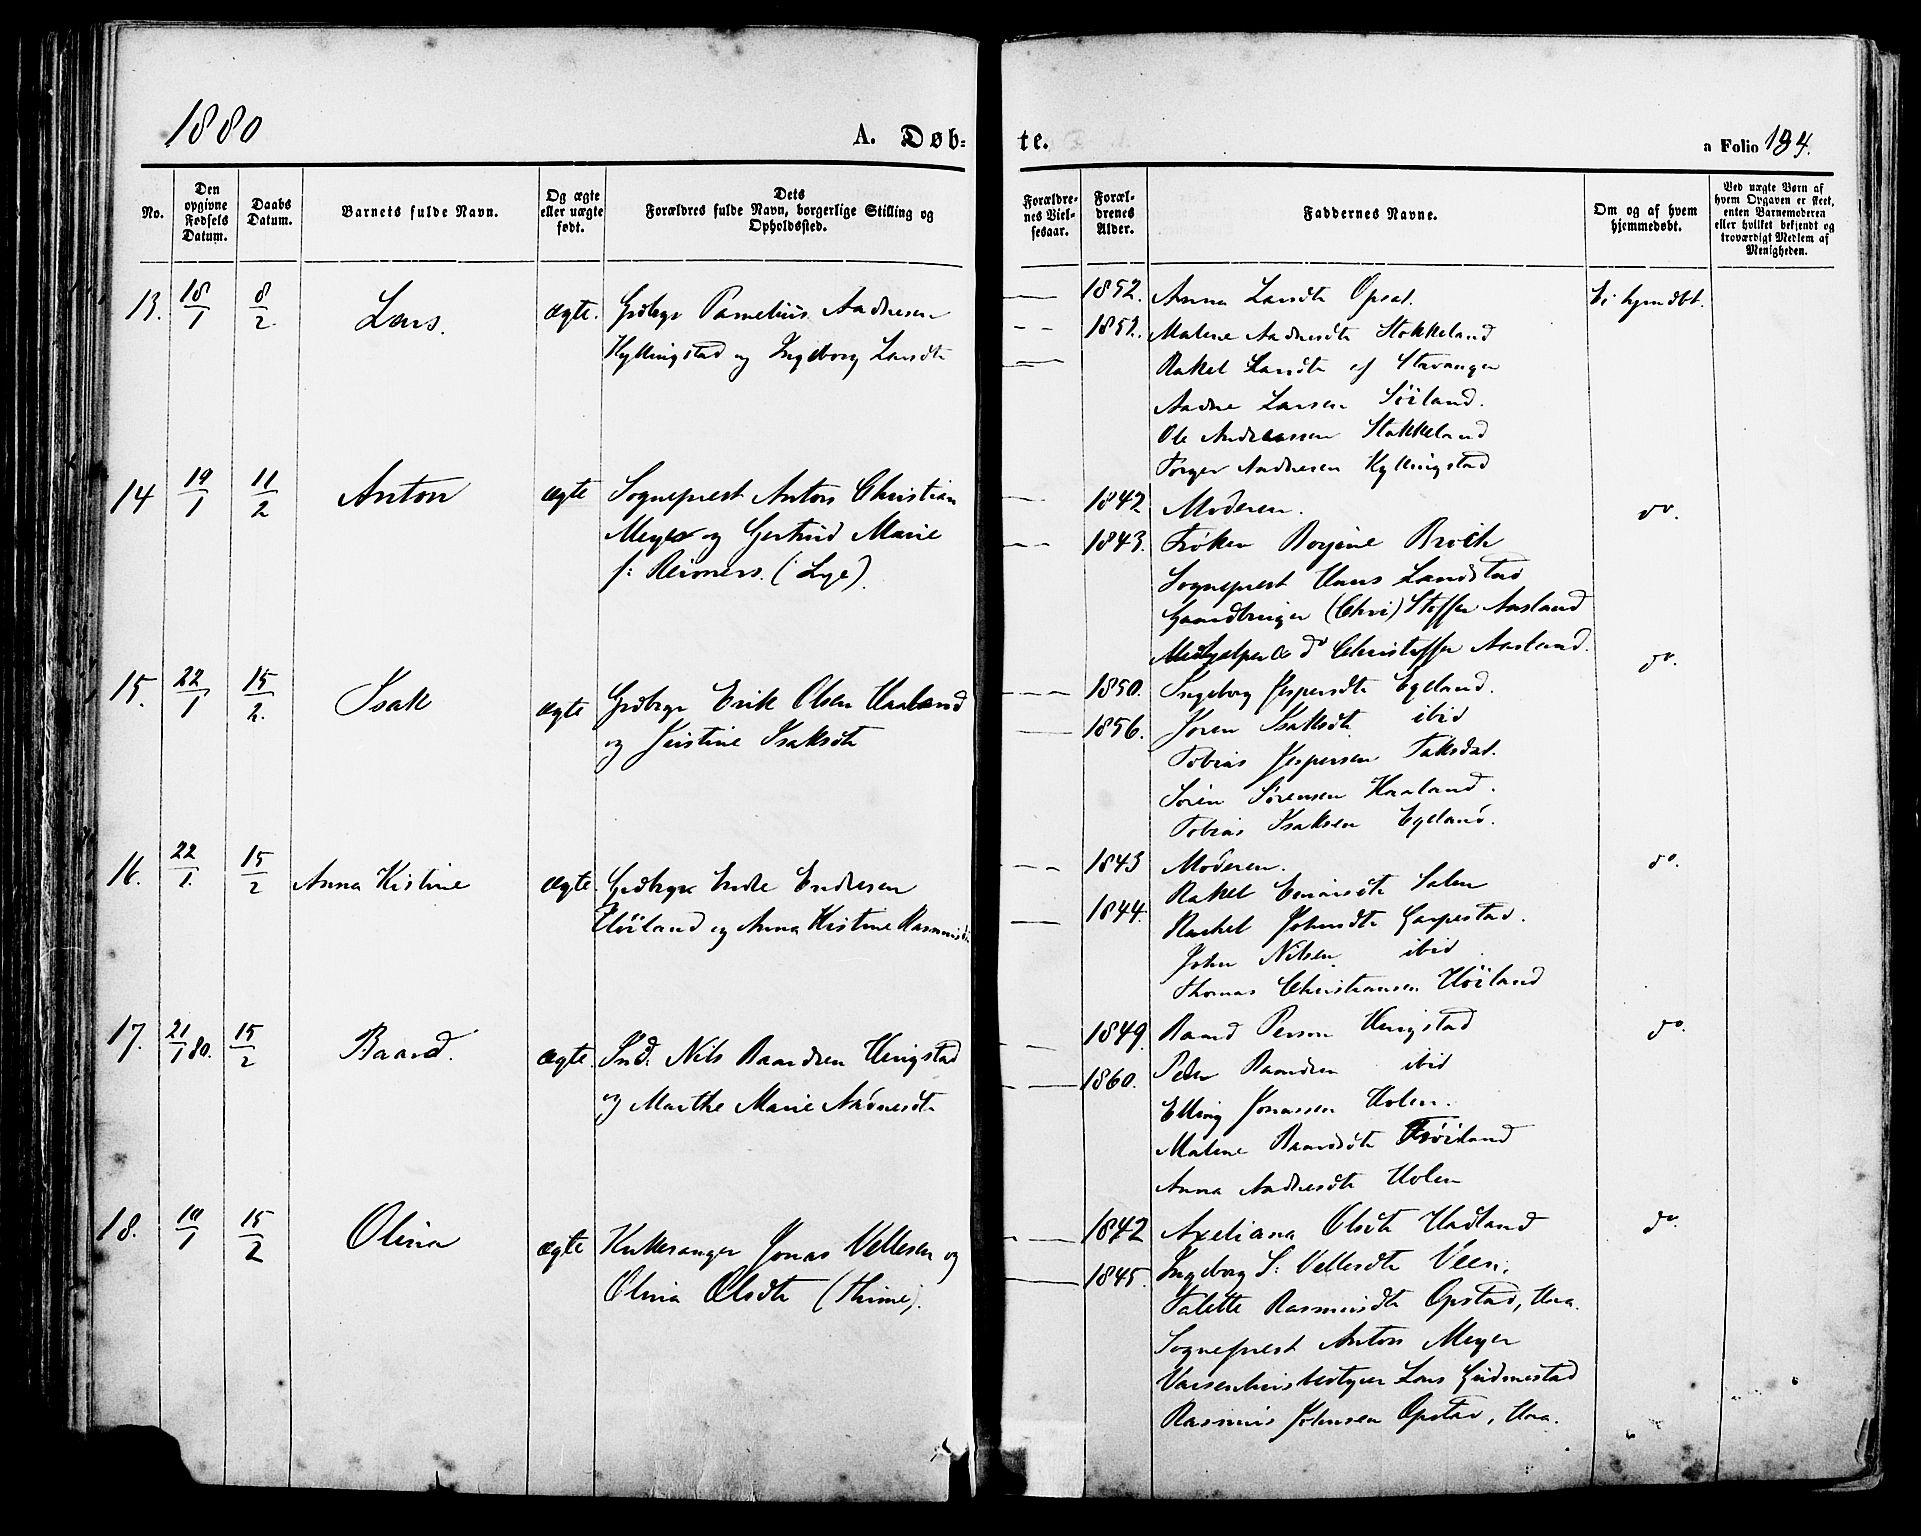 1880
A. Døb=
te.
a Folio 194.
No.
Den opgivne Fødsels Datum.
Daabs Datum.
Barnets fulde Navn.
Og ægte eller uægte født.
Dets
Forældres fulde Navn, borgerlige Stilling og
Opholdssted.
Forældre-
nes Viel-
sesaar.
Foræl-
drenes
Alder.
Faddernes Navne.
Om og af hvem
hjemmedøbt.
Ved uægte Børn af
hvem Opgaven er skeet,
enten Barnemoderen
eller hvilket bekjendt og
troværdigt Medlem af
Menigheden.
13. 18/1 8/2 Lars. ægte. Grdbrgr Pamelius Aadnesen
Kyllingstad og Ingeborg Larsdtr
1852. Anna Larsdtr Opsal. Ei hjmdbt.
1852. Malene Aadnesdtr Stokkeland
Rakel Larsdtr af Stavanger
Aadne Larsen Söiland.
Ole Andreassen Stokkeland
Torger Aadnesen Kyllingstad
14 19/1 11/2 Anton ægte Sogneprest Anton Christian
Meyer og Gertrud Marie
f: Reimers. (Lye).
1842 Moderen. do.
1843. Frøken Brock
Sogneprest Hans Landstad
Gaardbruger (Chri) Stoffer Aasland
Medhjelper & do Christoffer Aasland.
15. 22/1 15/2. Isak ægte Grdbrgr Erik Olsen Haaland
og Jeistine Isaksdtr
1850. Ingeborg Jespersdtr Egeland. do.
1856. Joren Isaksdtr ibid
Tobias Jespersen Taksdal.
Sören Sørensen Haaland.
Tobias Isaksen Egeland.
16. 22/1. 15/2 Anna Kistine ægte. Grdbrgr Endre Endresen
Höiland og Anna Kistine Rasmusdtr
1843 Moderen. do.
1844. Rakel Salen
Rachel Johnsdtr Garpestad.
John Nilsen ibid
Thomas Christiansen Höiland
17. 21/1 80. 15/2 Baard. ægte. Ind. Nils Baardsen Herigstad
og Marthe Marie Aadnesdtr
1849. Baard Person Herigstad do.
1860. Peder Baardsen ibid
Elling Jonassen Holen.
Malene Baardsdtr Fröiland
Anna Aadnesdtr Holen
18. 19/1 15/2 Olina ægte Kirkesanger Jonas Vellesen og
Olina Olsdtr (Thime).
1842 Axeliana Olsdtr Hadland do.
1845. Ingeborg S: Vellesdtr Veen.
Talette Rasmusdtr Opstad, Haa.
Sogneprest Anton Meyer
Vaisenhusbestyrer Lars Gudmestad
Rasmus Johnsen Opstad, Haa.